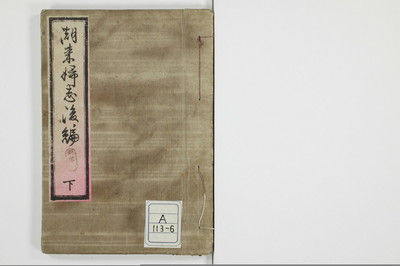 潮来婦志後編
下
A
113-6